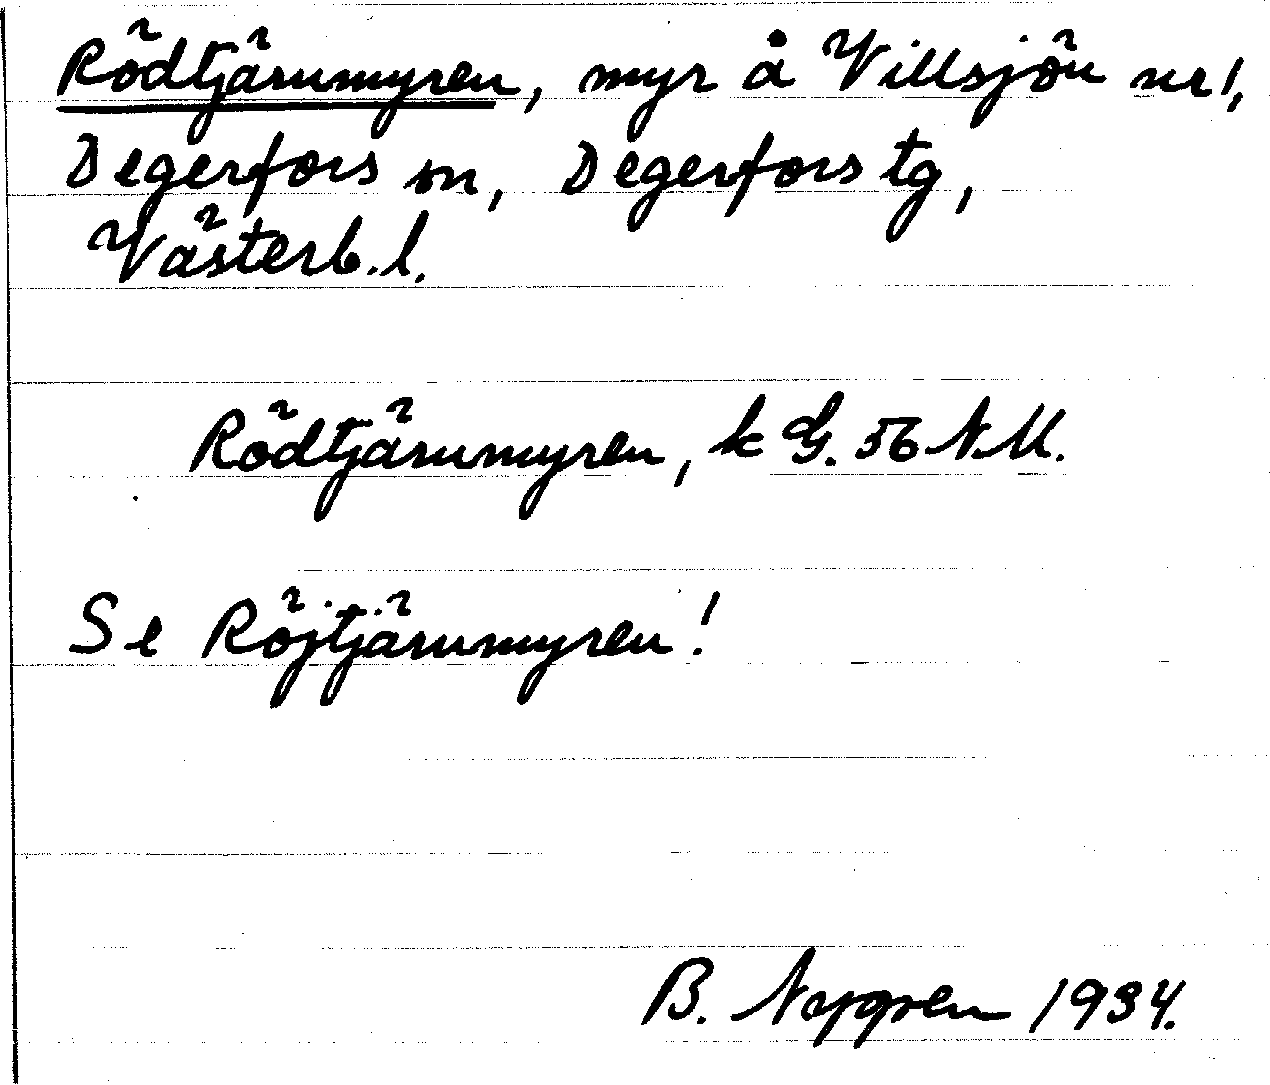 Rödtjärnmyren, myr å Villsjön nr 1,
Degerfors sn, Degerfors tg,
Västerb. l.
Rödtjärnmyren, k G. 56 N.M.
Se Röjtjärnmyren!
B. Nygren 1934.